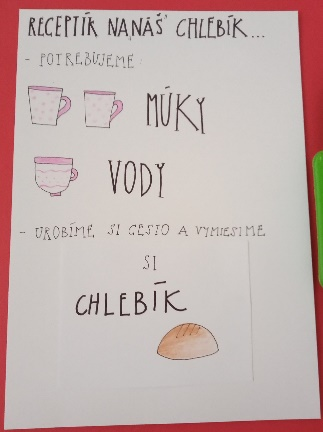 RECEPTÍR NA„NÁŠ" CHLEBÍK...
- POTREBUJEME:
MÚKY
VODY
- UROBÍME SI CESTO A VYMIESIME
SI
CHLEBÍK